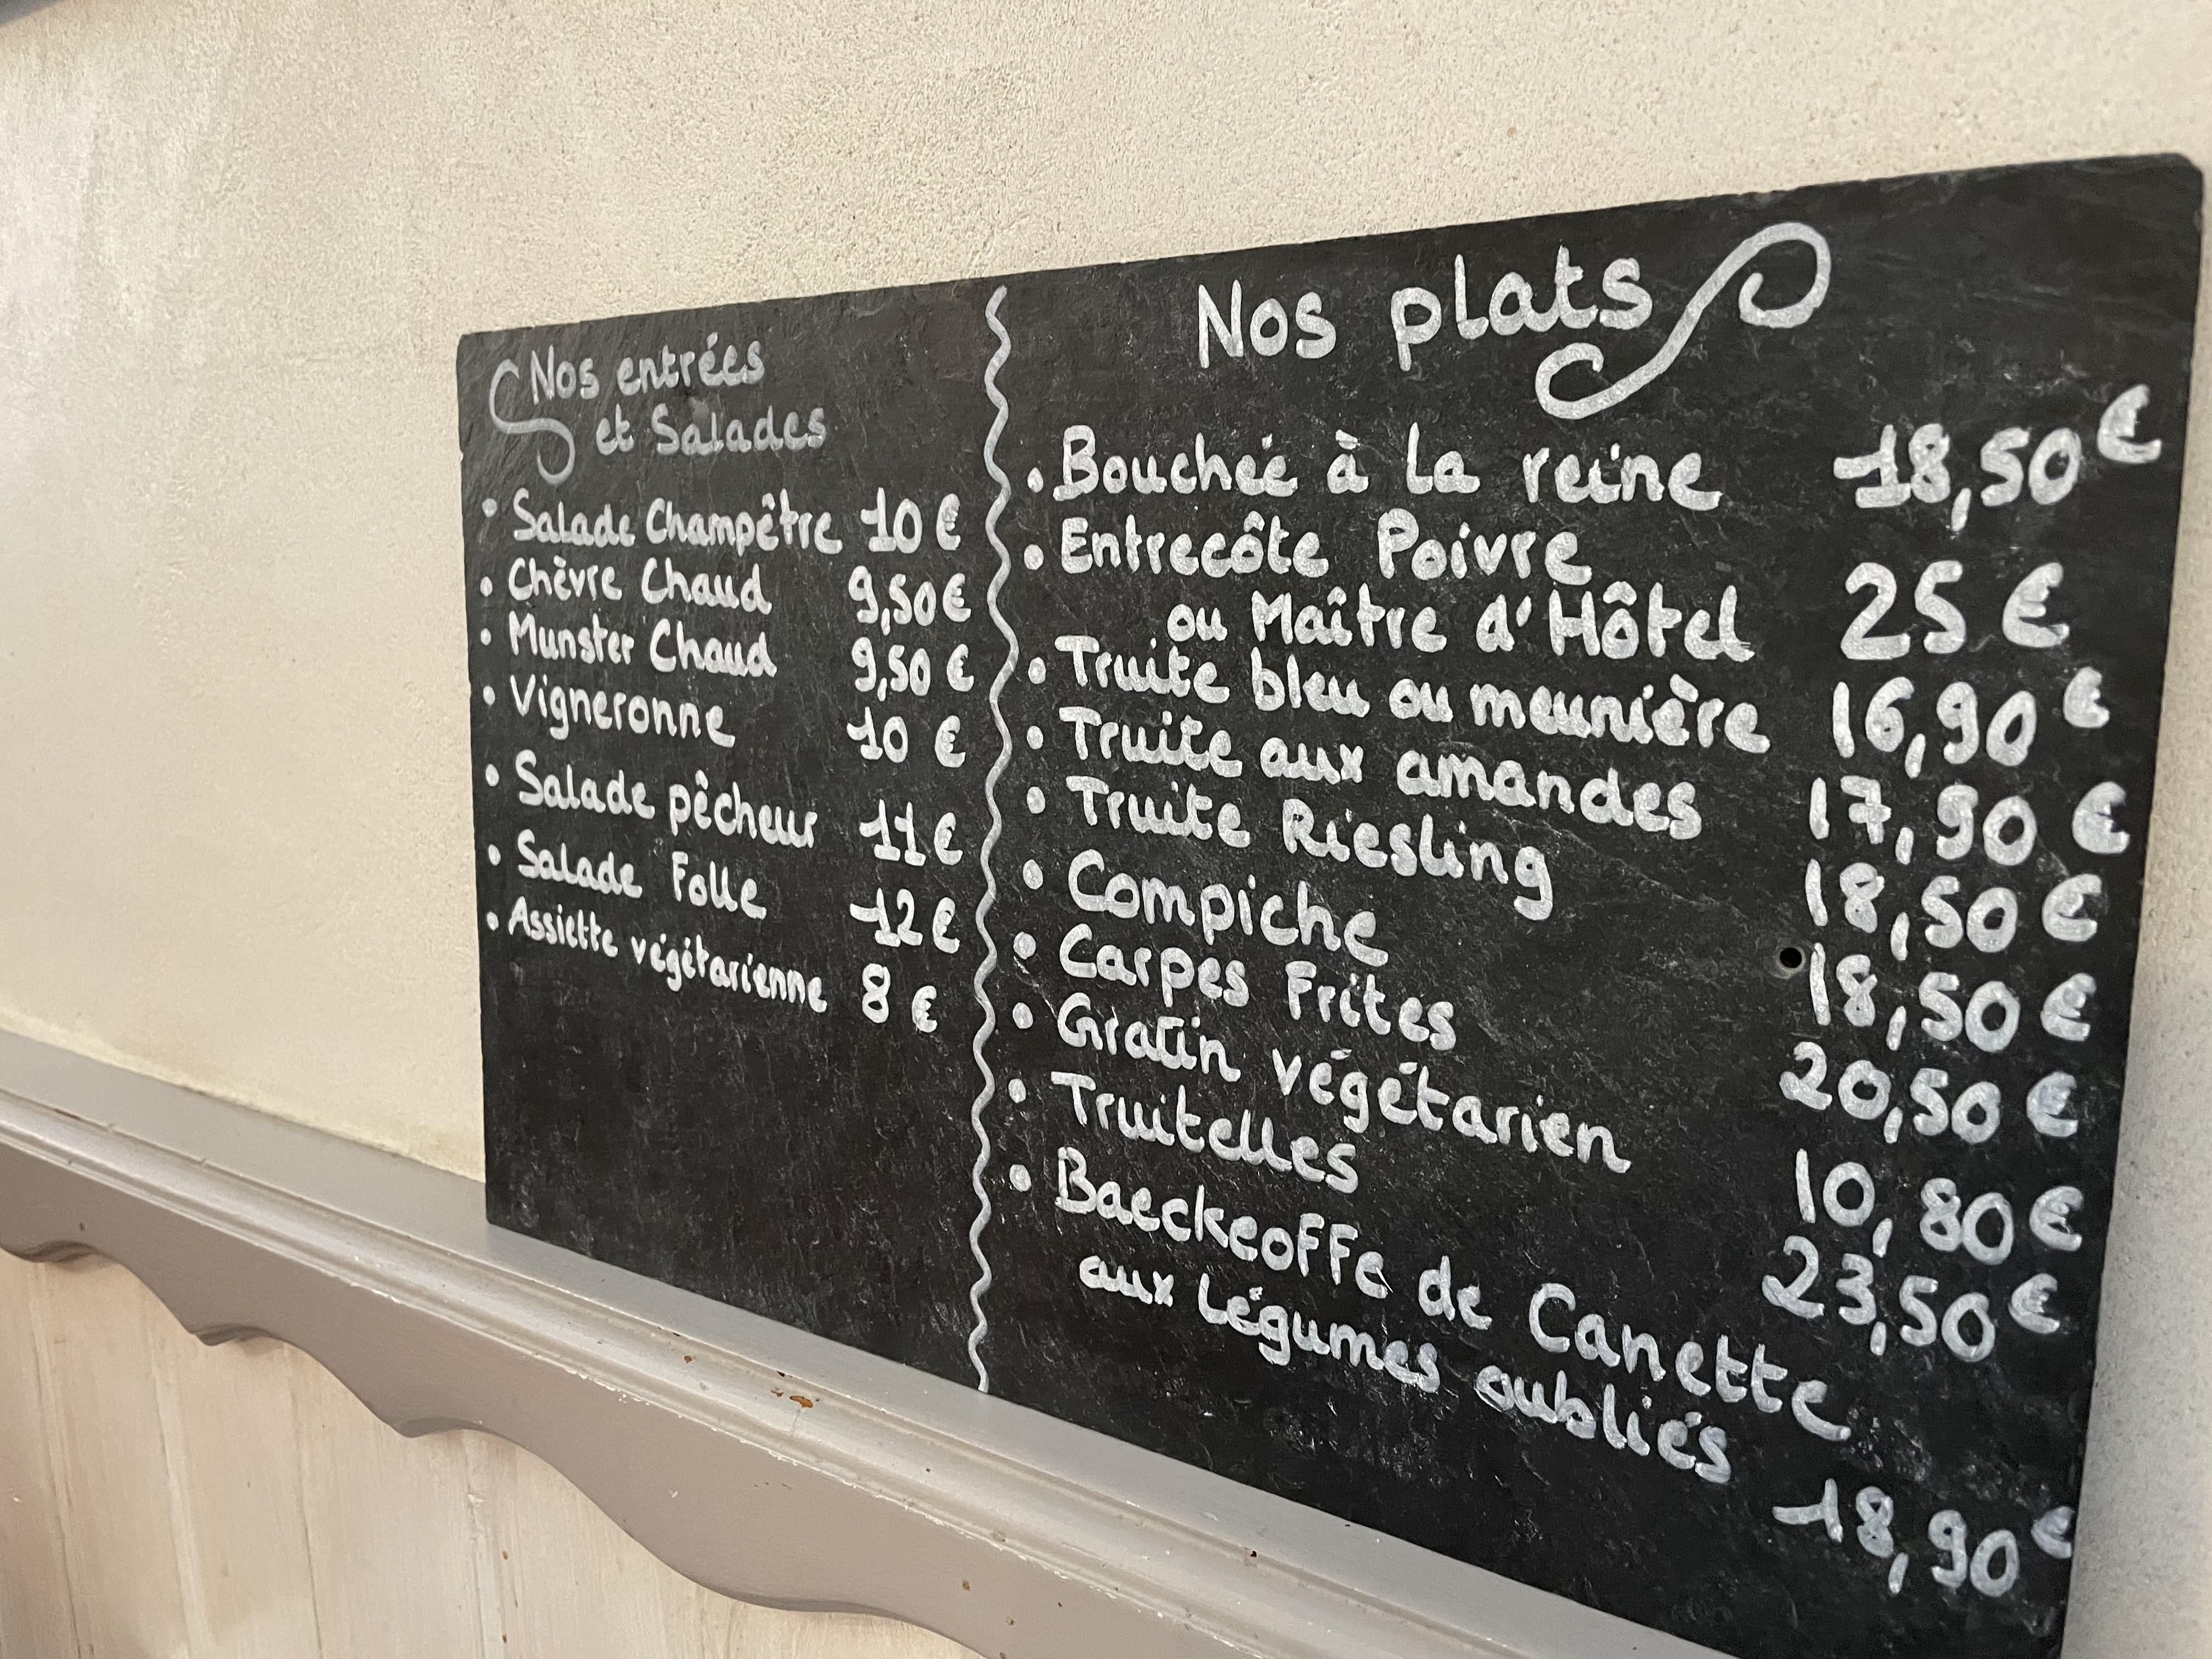 Nos entrées
et Salades
• Salade Champêtre 10 €
• Chèvre Chaud 9,50 €
• Munster Chaud 9,50 €
• Vigneronne 10 €
• Salade pêcheur 11 €
• Salade Folle 12 €
• Assiette végétarienne 8 €
Nos plats
• Bouchée à la reine 18,50 €
• Entrecôte Poivre
ou Maître d'Hôtel 25 €
• Truite bleu ou meunière 16,90 €
• Truite aux amandes 17,90 €
• Truite Riesling 18,50 €
• Compiche 18,50 €
• Carpes Frites 20,50 €
• Gratin végétarien 10,80 €
• Truitelles 23,50 €
• Baeckeoffe de Canette
aux légumes oubliés 18,90 €